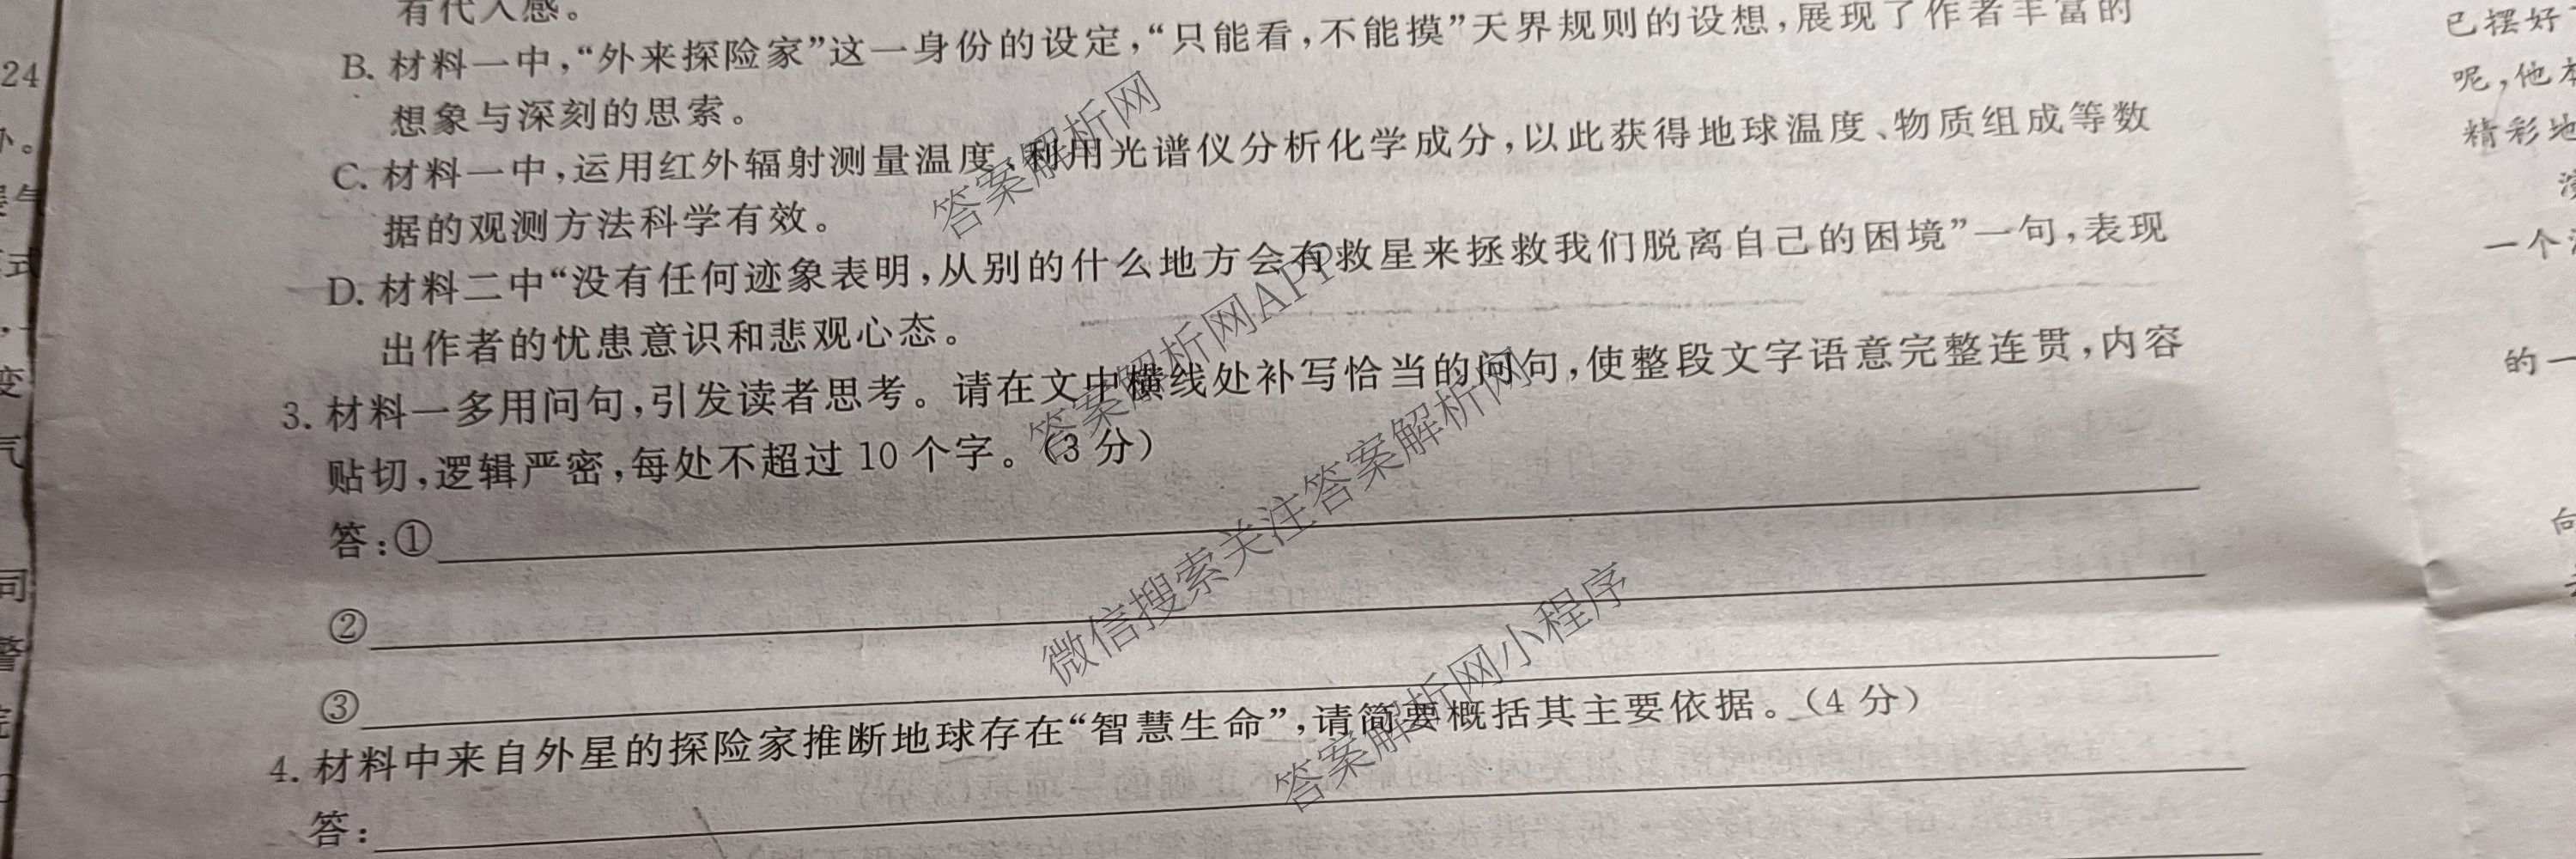 有代入感。
B. 材料一中，“外来探险家”这一身份的设定，“只能看，不能摸”天界规则的设想，展现了作者丰富的
想象与深刻的思索。
C. 材料一中，运用红外辐射测量温度、利用光谱仪分析化学成分，以此获得地球温度、物质组成等数
据的观测方法科学有效。
D. 材料二中“没有任何迹象表明，从别的什么地方会有救星来拯救我们脱离自己的困境”一句，表现
出作者的忧患意识和悲观心态。
3. 材料一多用问句，引发读者思考。请在文中横线处补写恰当的问句，使整段文字语意完整连贯，内容
贴切，逻辑严密，每处不超过 10 个字。（3 分）
答：①
②
③
4. 材料中来自外星的探险家推断地球存在“智慧生命”，请简要概括其主要依据。（4 分）
答：
24
小。
式
变
气
司
警
已摆好
呢，他
精彩地
一个
的一
向
答案解析网
答案解析网APP
微信搜索关注答案解析网
答案解析网小程序